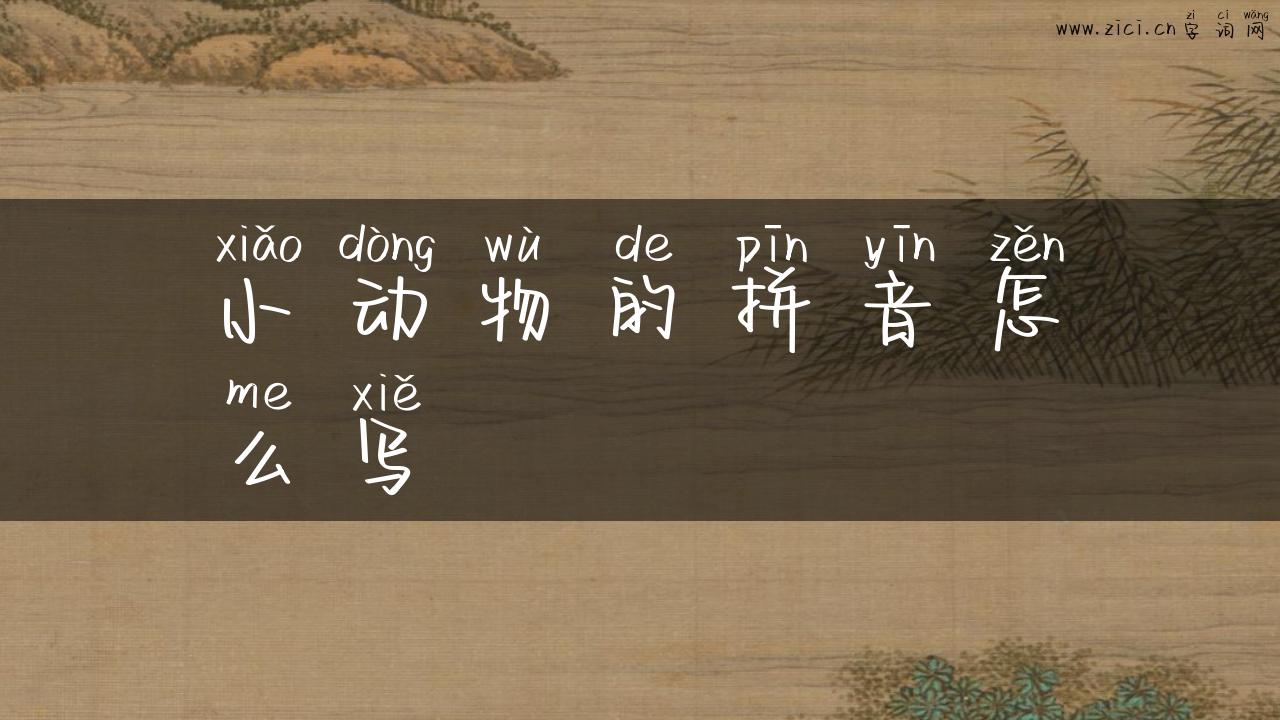 zì cí wǎng
www.zici.cn 字词网
xiǎo dòng wù de pīn yīn zěn
小动物的拼音怎
me xiě
么写